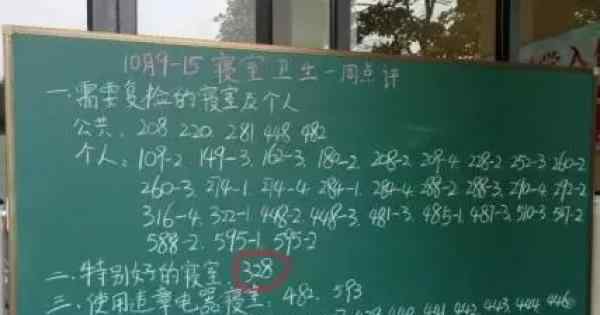 10月9-15寝室卫生一周点评
一.需要复检的寝室及个人
公共: 208 220. 281 448 482
个人: 109-2. 149-3. 162-3. 180-2. 208-2. 209-4. 228-2. 252-3. 260-2
260-3. 274-1. 274-4. 284-1. 284-4. 288-2. 288-3. 290-4. 292-2
316-4. 322-1. 448-2. 448-3. 481-3. 485-1. 487-3. 510-3. 517-2
588-2. 595-1. 595-2
二.特别好的寝室: 328
三.使用违章电器寝室: 482. 593
440. 441. 442. 443. 444. 446